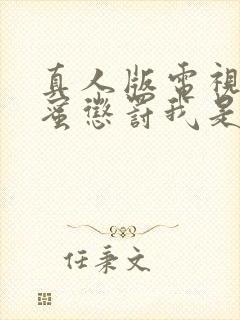 真人版電視
蜜懲罰我是
任秉文